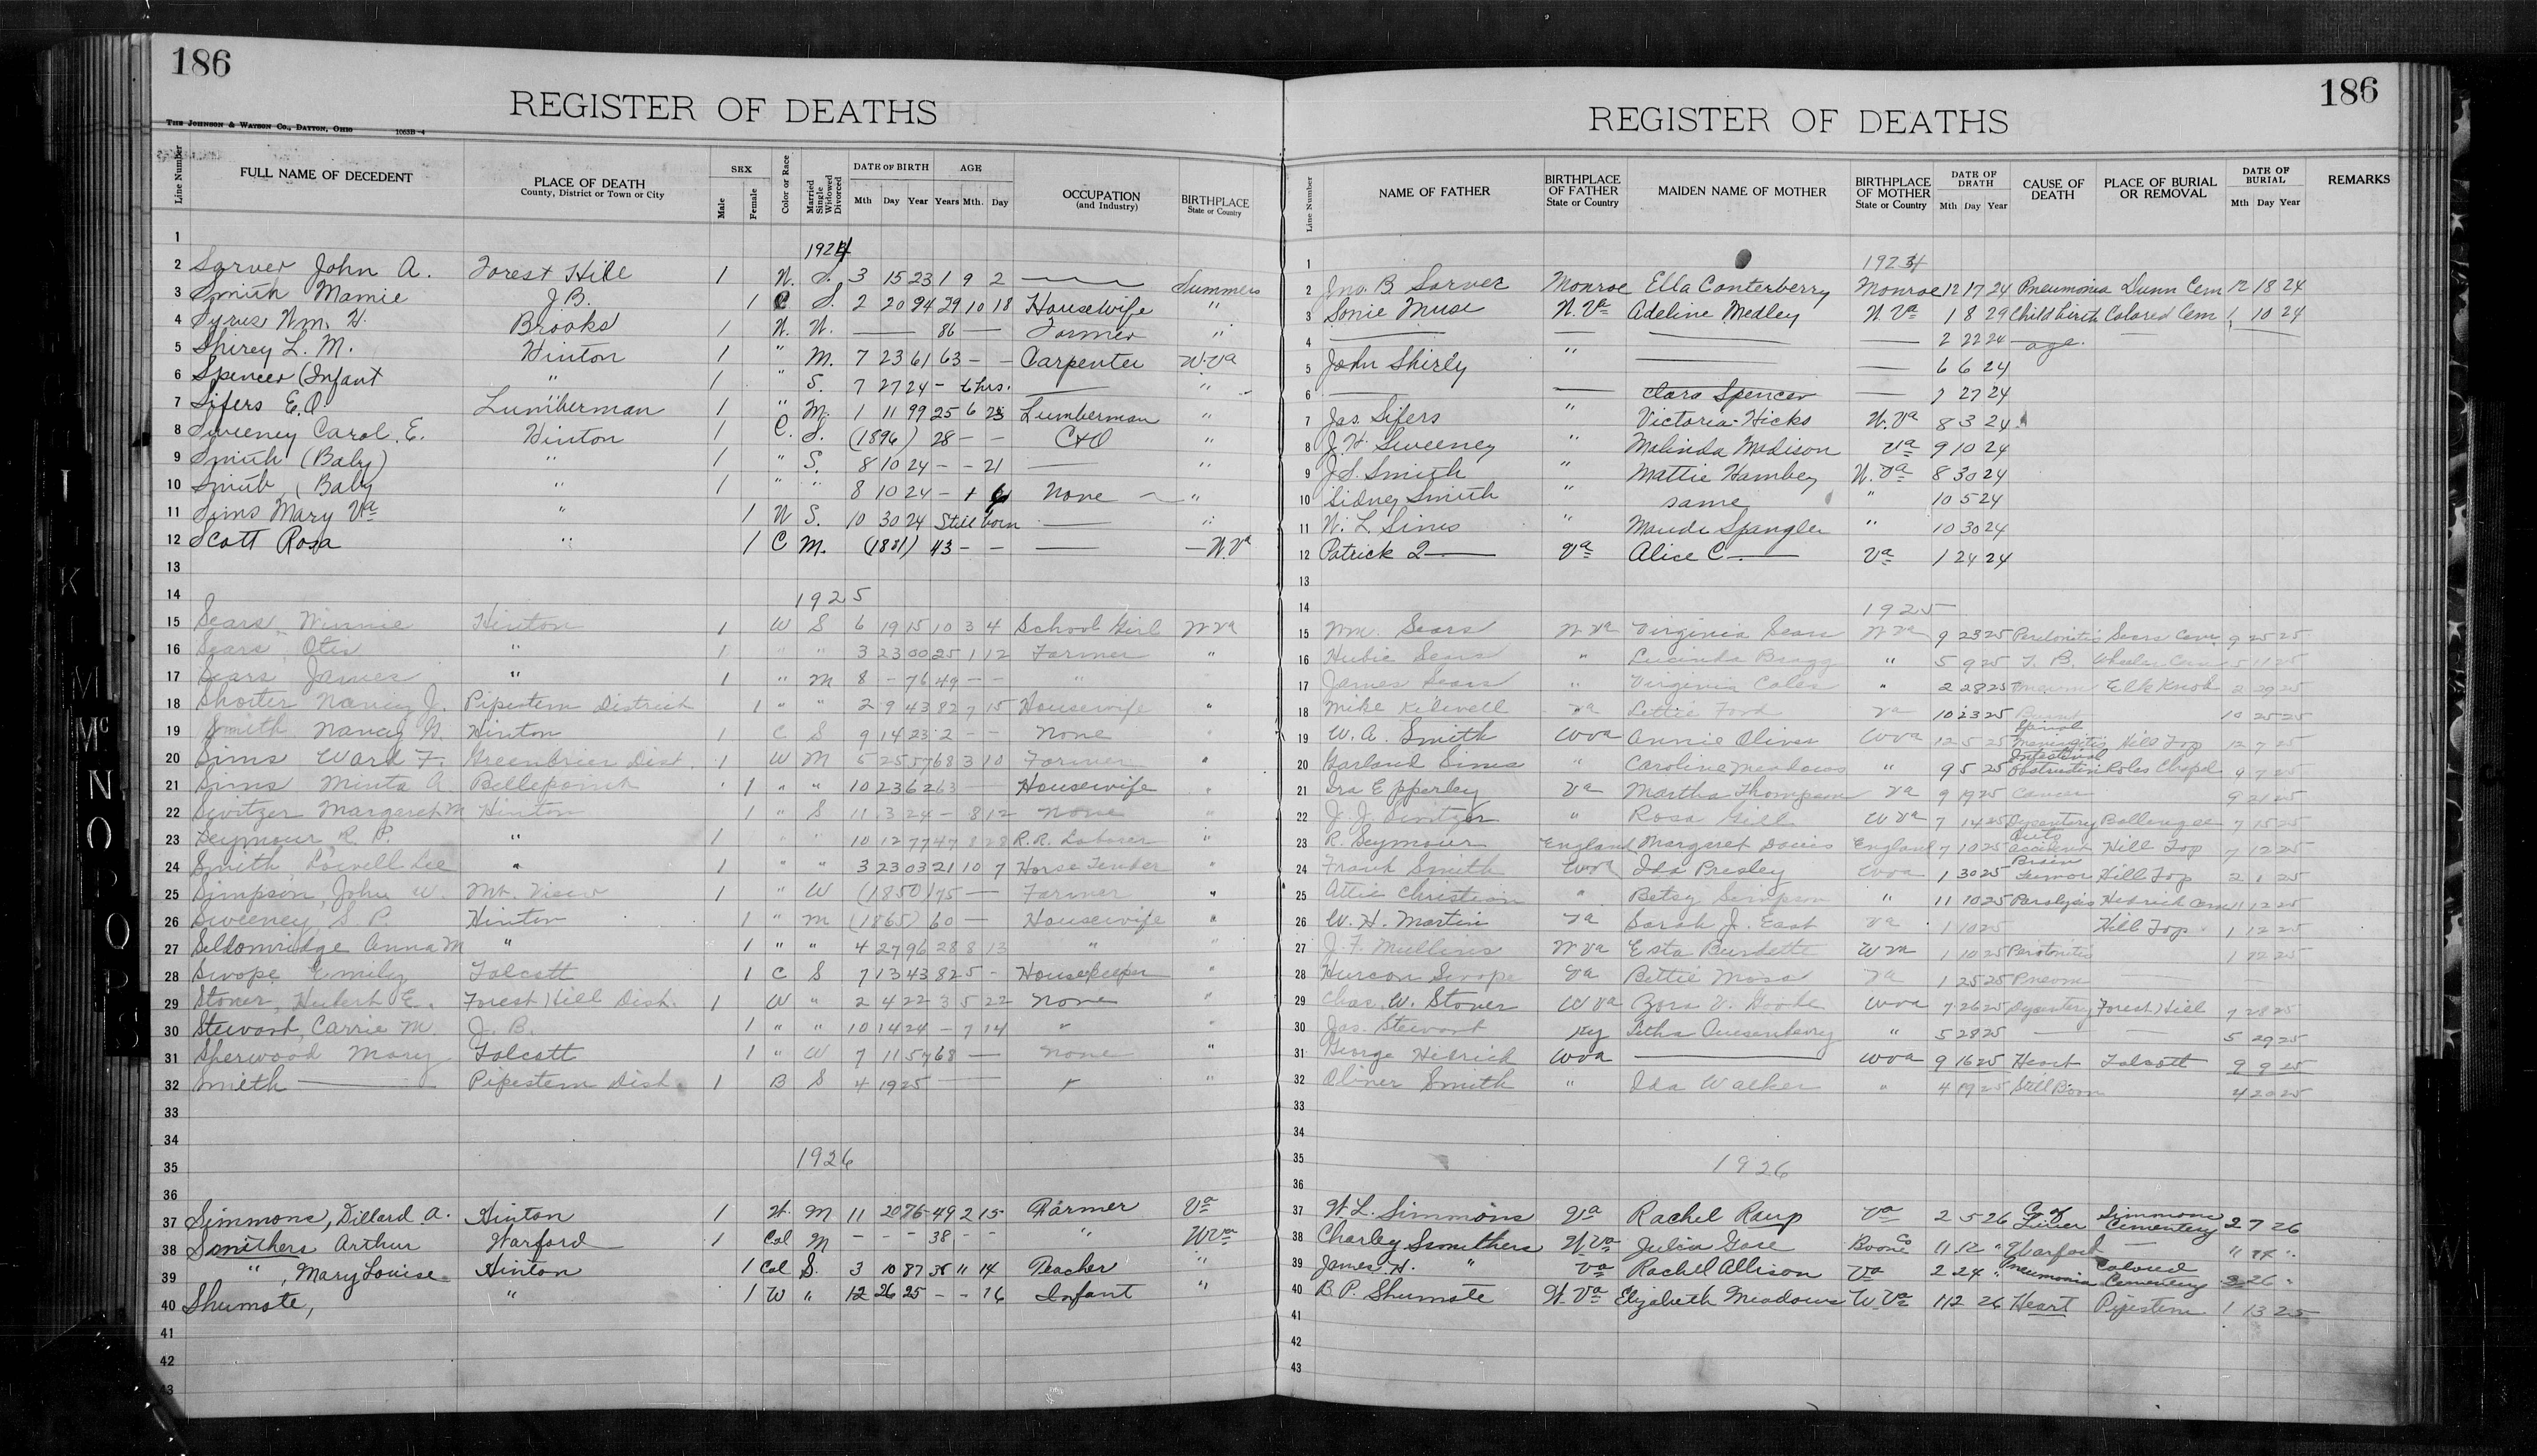 186
REGISTER OF DEATHS
THE JOHNSON & WATSON CO., DAYTON, OHIO 1063B-4
Line Number FULL NAME OF DECEDENT PLACE OF DEATH County, District or Town or City SEX Male Female Color or Race Married Single Widowed Divorced DATE OF BIRTH Mth Day Year AGE Years Mth. Day OCCUPATION (and Industry) BIRTHPLACE State or Country
1 1924
2 Sarver John A. Forest Hill 1 W. S. 3 15 23 1 9 2 — Summers
3 Smith Mamie J.B. 1 C S. 2 20 94 29 10 18 Housewife "
4 Wm. H. Brooks 1 W. W. — 86 — Farmer "
5 Shirey L. M. Hinton 1 " M. 7 23 61 63 - - Carpenter W.Va
6 Spencer (Infant " 1 " S. 7 27 24 - 6 hrs. — "
7 Sifers E.O. Lumberman 1 " M. 1 11 99 25 6 23 Lumberman "
8 Sweeney Carol. E. Hinton 1 C. S. (1896) 28 - - C&O "
9 Smith (Baby) " 1 " S. 8 10 24 - - 21 — "
10 Smith (Baby " 1 " " 8 10 24 - None "
11 Sims Mary Va " 1 W S. 10 30 24 Still born — "
12 Scott Rosa " 1 C M. (1881) 43 - - — W.Va
13
14 1925
15 Sears Winnie Hinton 1 W S 6 19 15 10 3 4 School Girl W Va
16 Sears, Otis " 1 " " 3 23 00 25 1 12 Farmer "
17 Sears James " 1 " M 8 - 76 49 - - "
18 Shorter Nancy J. Pipestem District 1 " " 2 9 43 82 7 15 Housewife "
19 Smith Nancy Hinton 1 C S 9 14 23 2 - - None "
20 Sims Ward F. Greenbrier Dist. 1 W M 5 25 57 68 3 10 Farmer "
21 Sims Minta A Bellepoint 1 " " 10 23 62 63 Housewife "
22 Switzer Margaret M Hinton 1 " S 11 3 24 - 8 12 None "
23 Seymour, R. P. " 1 " " 10 12 77 47 8 28 R.R. Laborer "
24 Smith, Lowell Lee " 1 " " 3 23 03 21 10 7 Horse Tender "
25 Simpson, John W. Mt. View 1 " W (1850) 75 — Farmer "
26 Sweeney, S. P. Hinton 1 " M (1865) 60 — Housewife "
27 Seldomridge Anna M " 1 " " 4 27 96 28 8 13 " "
28 Swope Emily Talcott 1 C S 7 13 43 82 5 - Housekeeper "
29 Stover, Hubert E. Forest Hill Dist. 1 W " 2 4 22 3 5 22 None "
30 Stewart, Carrie M. J. B. 1 " " 10 14 24 - 7 14 " "
31 Sherwood Mary Talcott 1 " W 7 11 57 68 — None "
32 Smith — Pipestem Dist. 1 B S 4 19 25 — "
33
34
35 1926
36
37 Simmons, Dillard A. Hinton 1 W. M 11 20 76 49 2 15 Farmer Va
38 Smithers Arthur Warford 1 Col M - - - 38 - - " W Va
39 " , Mary Louise Hinton 1 Col S. 3 10 87 38 11 14 Teacher "
40 Shumate, " 1 W " 12 26 25 - - 16 Infant "
41
42
43
186
REGISTER OF DEATHS
Line Number NAME OF FATHER BIRTHPLACE OF FATHER State or Country MAIDEN NAME OF MOTHER BIRTHPLACE OF MOTHER State or Country DATE OF DEATH Mth Day Year CAUSE OF DEATH PLACE OF BURIAL OR REMOVAL DATE OF BURIAL Mth Day Year REMARKS
1 1924
2 Jno. B. Sarver Monroe Ella Canterberry Monroe 12 17 24 Pneumonia Dunn Cem 12 18 24
3 Sonie Muse W. Va Adeline Medley W. Va 1 8 29 Child birth Colored Cem 1 10 24
4 — — 2 22 24 age. —
5 John Shirly " — — 6 6 24
6 — — Clara Spencer — 7 27 24
7 Jas. Sifers " Victoria Hicks W. Va 8 3 24
8 J. H. Sweeney " Malinda Madison Va 9 10 24
9 J. S. Smith " Mattie Hambey W. Va 8 30 24
10 Sidney Smith " same " 10 5 24
11 W. L. Sims " Maude Spangler " 10 30 24
12 Patrick Q— Va Alice C— Va 1 24 24
13
14 1925
15 Wm. Sears W Va Virginia Sears W Va 9 23 25 Sears Cem 9 25 25
16 Hubie Sears " Lucinda Bragg " 5 9 25 T. B. Wheeler Cem 5 11 25
17 James Sears " Virginia Cales " 2 28 25 Pneum Elk Knob 2 29 25
18 Mike Va Lettie Ford Va 10 23 25 10 25 25
19 W. A. Smith W Va Annie Oliver W Va 12 5 25 Spinal Meningitis Hill Top 12 7 25
20 Garland Sims " Caroline Meadows " 9 5 25 Intestinal Obstruction Coles Chapel 9 7 25
21 Ira Epperley Va Martha Thompson Va 9 19 25 Cancer 9 21 25
22 J. J. Switzer " Rosa Gill W Va 7 14 25 Dysentery Ballengee 7 15 25
23 R. Seymour England Margaret Davis England 7 10 25 Auto accident Hill Top 7 12 25
24 Frank Smith W Va Ida Presley W Va 1 30 25 Brain Tumor Hill Top 2 1 25
25 Attie Christian " Betsy Simpson " 11 10 25 Paralysis Hedrick Cem 11 12 25
26 W. H. Martin Va Sarah J. East Va 1 10 25 Hill Top 1 12 25
27 J. F. Mullins W Va Esta Burdette W Va 1 10 25 Peretonitis 1 12 25
28 Hurcon Swope Va Bettie Moss Va 1 25 25 Pneum —
29 Chas. W. Stover W Va Zora V. Goode W Va 7 26 25 Dysentery Forest Hill 7 28 25
30 Jas. Stewart Ky Letha Quesenberry " 5 28 25 — — 5 29 25
31 George Hedrick W Va — W Va 9 16 25 Heart Talcott 9 9 25
32 Abner Smith " Ida Walker " 4 19 25 Still Born 4 20 25
33
34
35 1926
36
37 W. L. Simmons Va Rachel Raup Va 2 5 26 C. of Liver Simmons Cementery 2 7 26
38 Charley Smithers W. Va Julia Gose Boone Co 11 12 " Warford — " "
39 James H. " Va Rachel Allison Va 2 24 " Pneumonia Colored Cementery 26 "
40 B. P. Shumate W. Va Elizabeth Meadows W. Va 1 12 26 Heart Pipestem 1 13 25
41
42
43